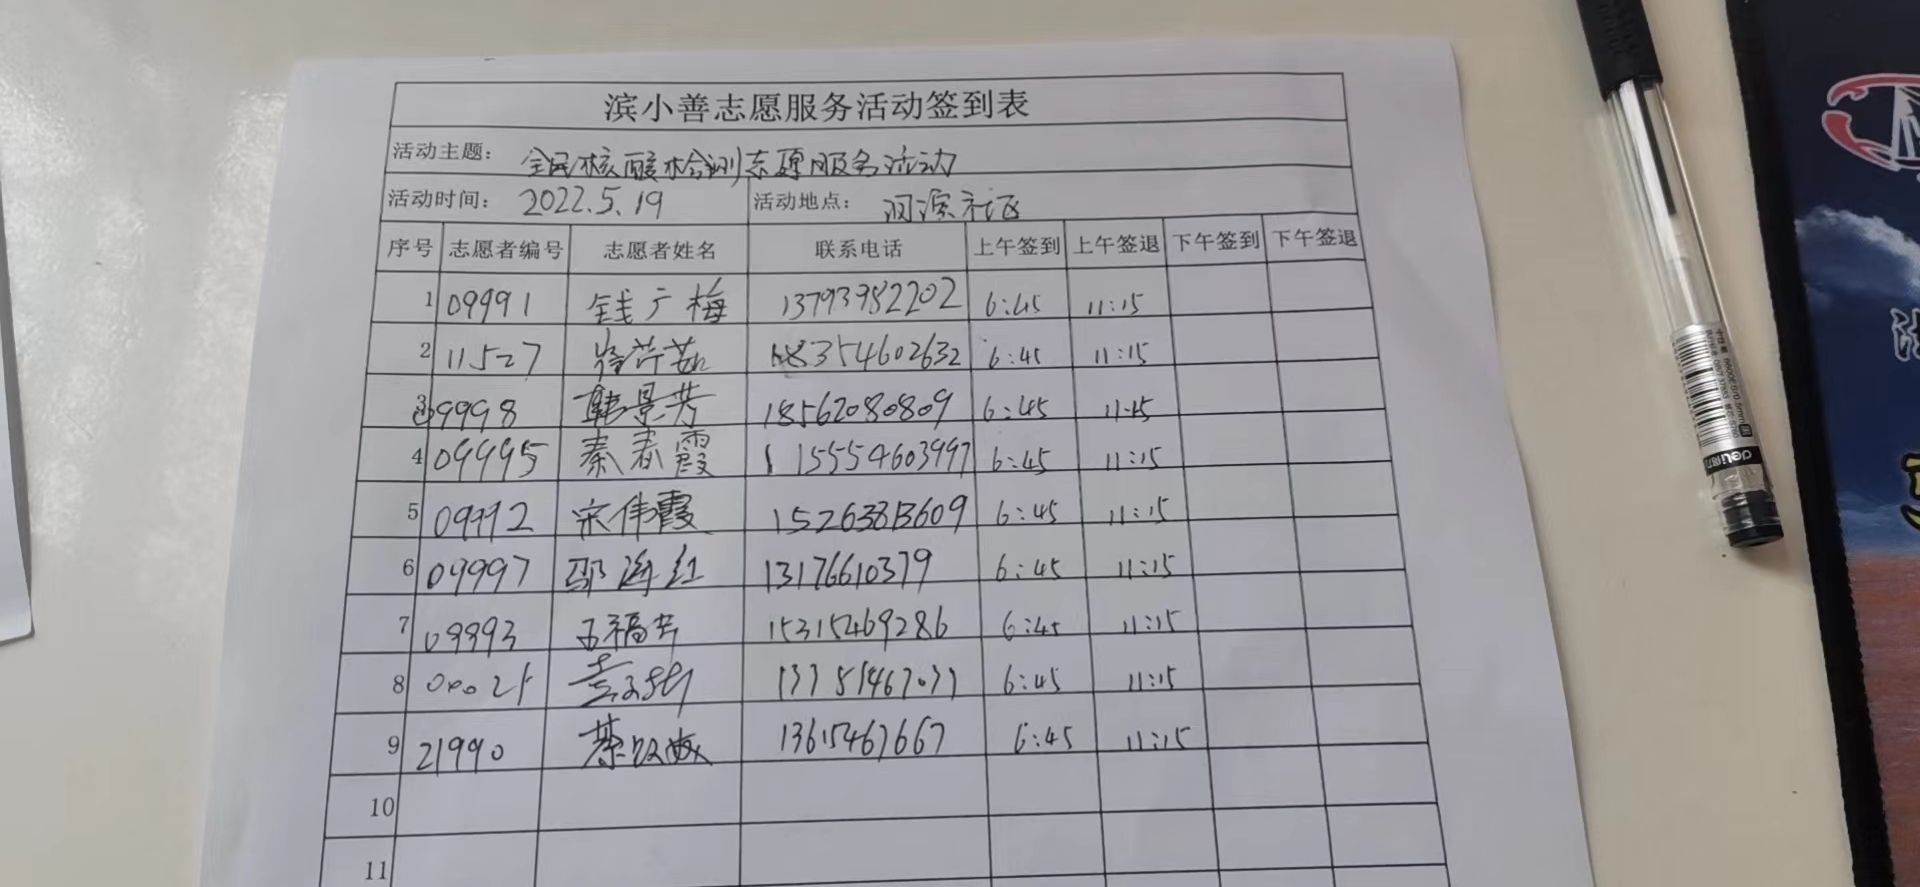 滨小善志愿服务活动签到表
活动主题： 全民核酸检测志愿服务活动
活动时间： 2022.5.19 活动地点： 河滨社区
序号 志愿者编号 志愿者姓名 联系电话 上午签到 上午签退 下午签到 下午签退
1 09991 钱广梅 13793982202 6:45 11:15
2 11527 18354602632 6:45 11:15
3 09998 韩景芳 18562080809 6:45 11:15
4 09995 秦春霞 15554603997 6:45 11:15
5 09992 宋伟霞 15263813609 6:45 11:15
6 09997 邵海红 13176610379 6:45 11:15
7 09993 15315469286 6:45 11:15
8 6:45 11:15
9 21990 13615467667 6:45 11:15
10
11
deli